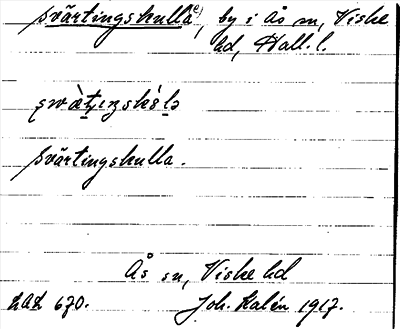 Svärtingskulla, by i Ås sn, Viske
hd, Hall. l.
Svärtingskulla.
Ås sn, Viske hd
LAL 670. Joh. Kalén 1917.